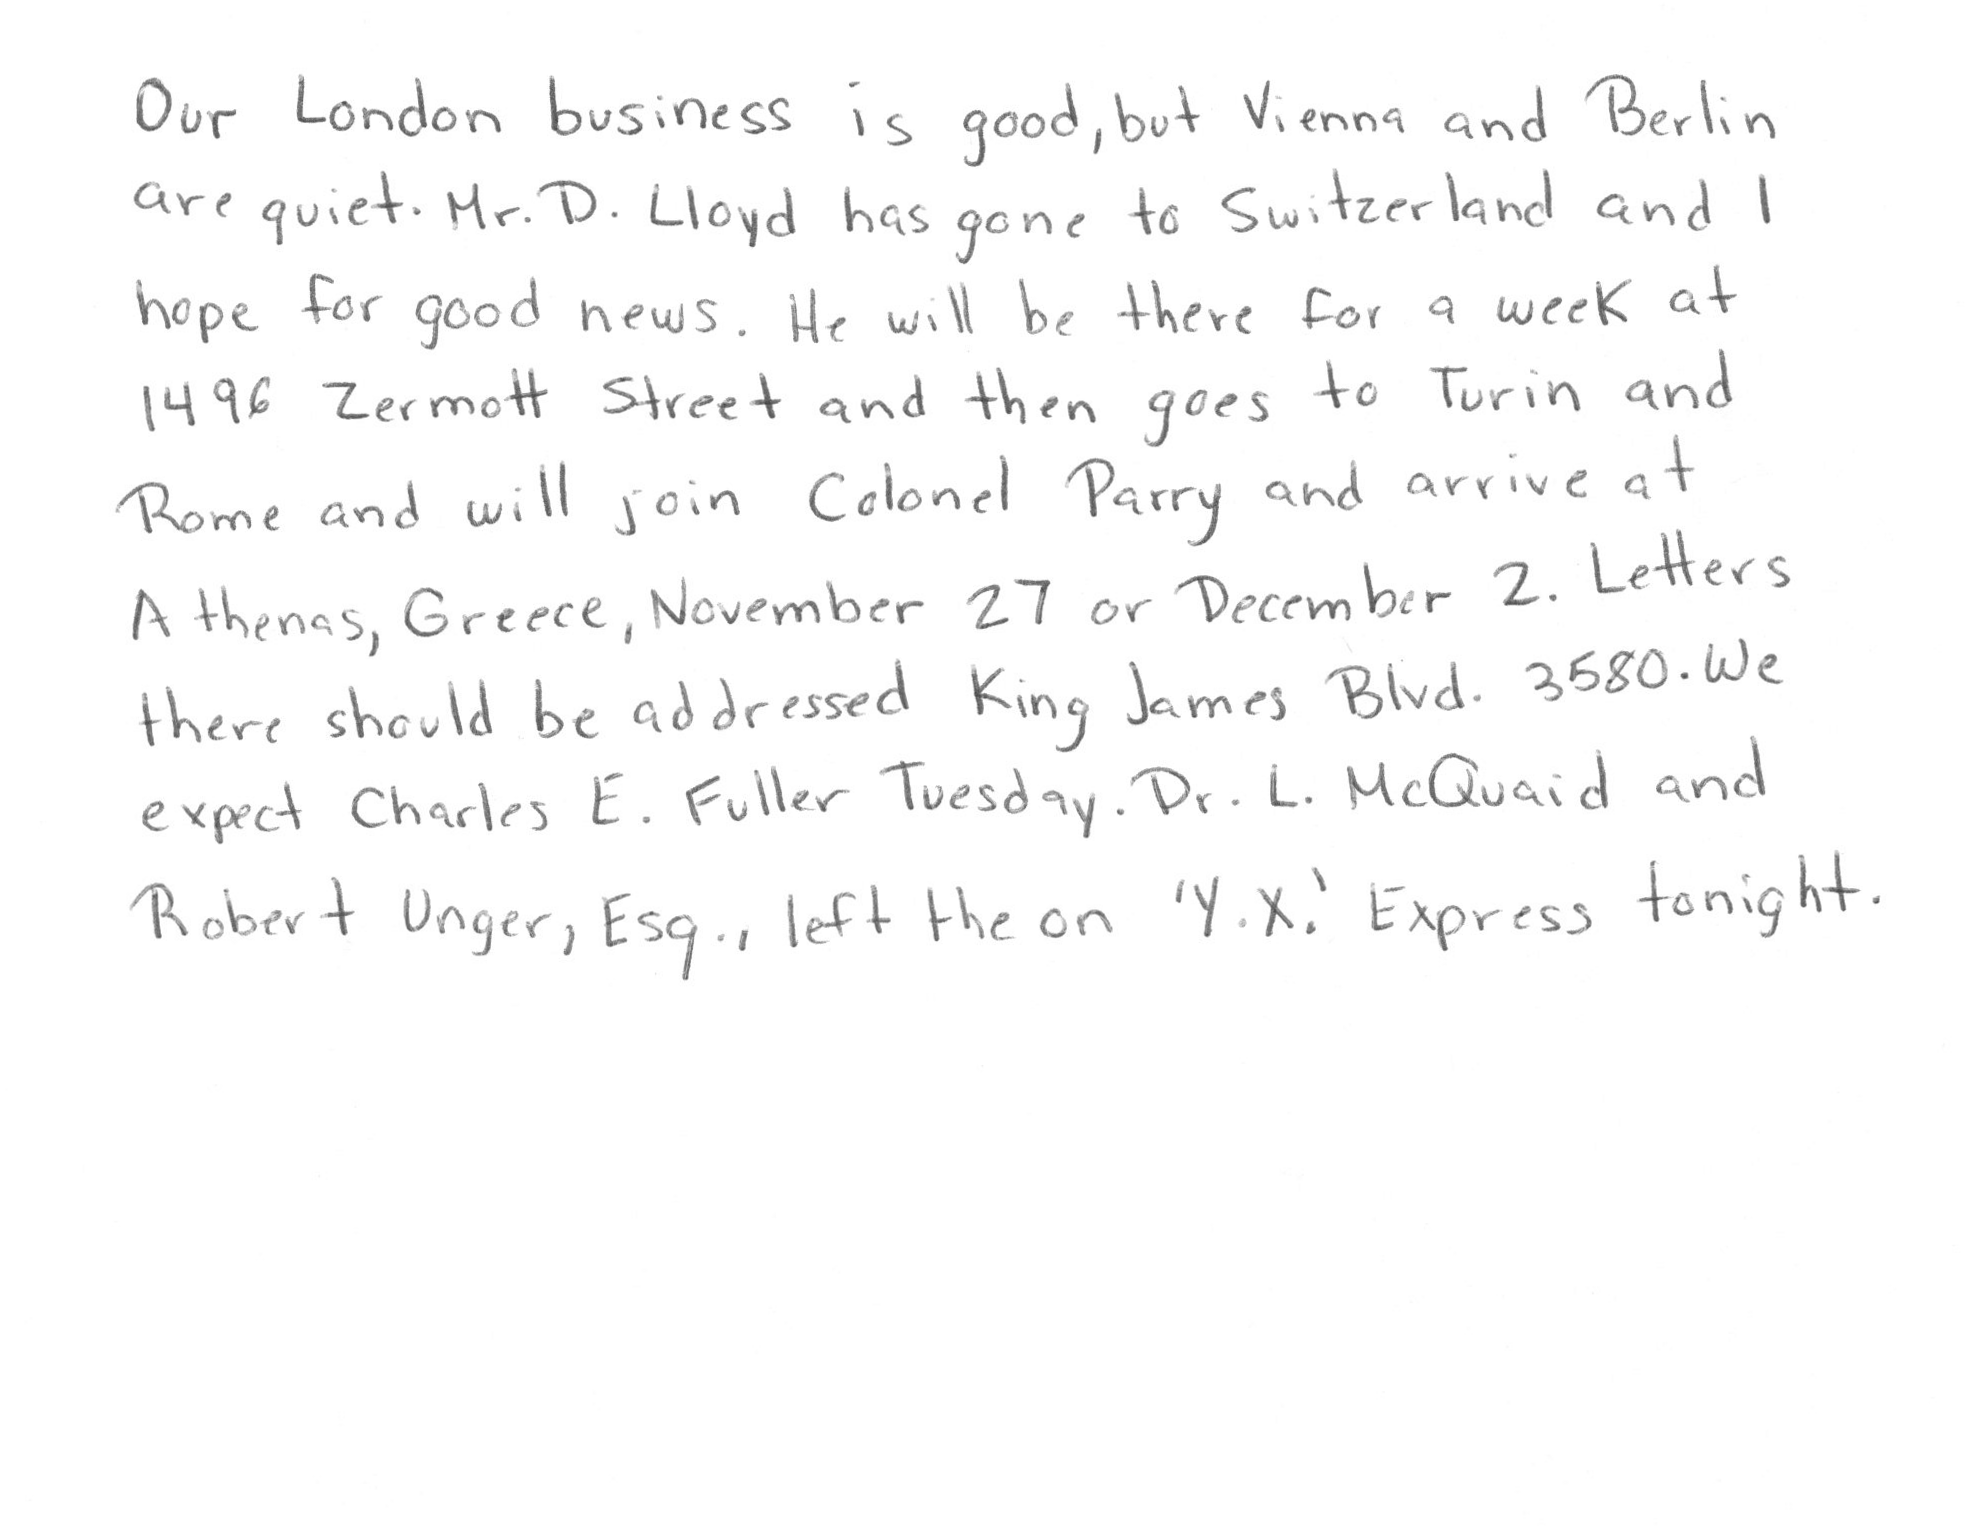 Our London business is good, but Vienna and Berlin
are quiet. Mr. D. Lloyd has gone to Switzerland and I
hope for good news. He will be there for a week at
1496 Zermott Street and then goes to Turin and
Rome and will join Colonel Parry and arrive at
Athenas, Greece, November 27 or December 2. Letters
there should be addressed King James Blvd. 3580. We
expect Charles E. Fuller Tuesday. Dr. L. McQuaid and
Robert Unger, Esq., left the on 'Y.X.' Express tonight.